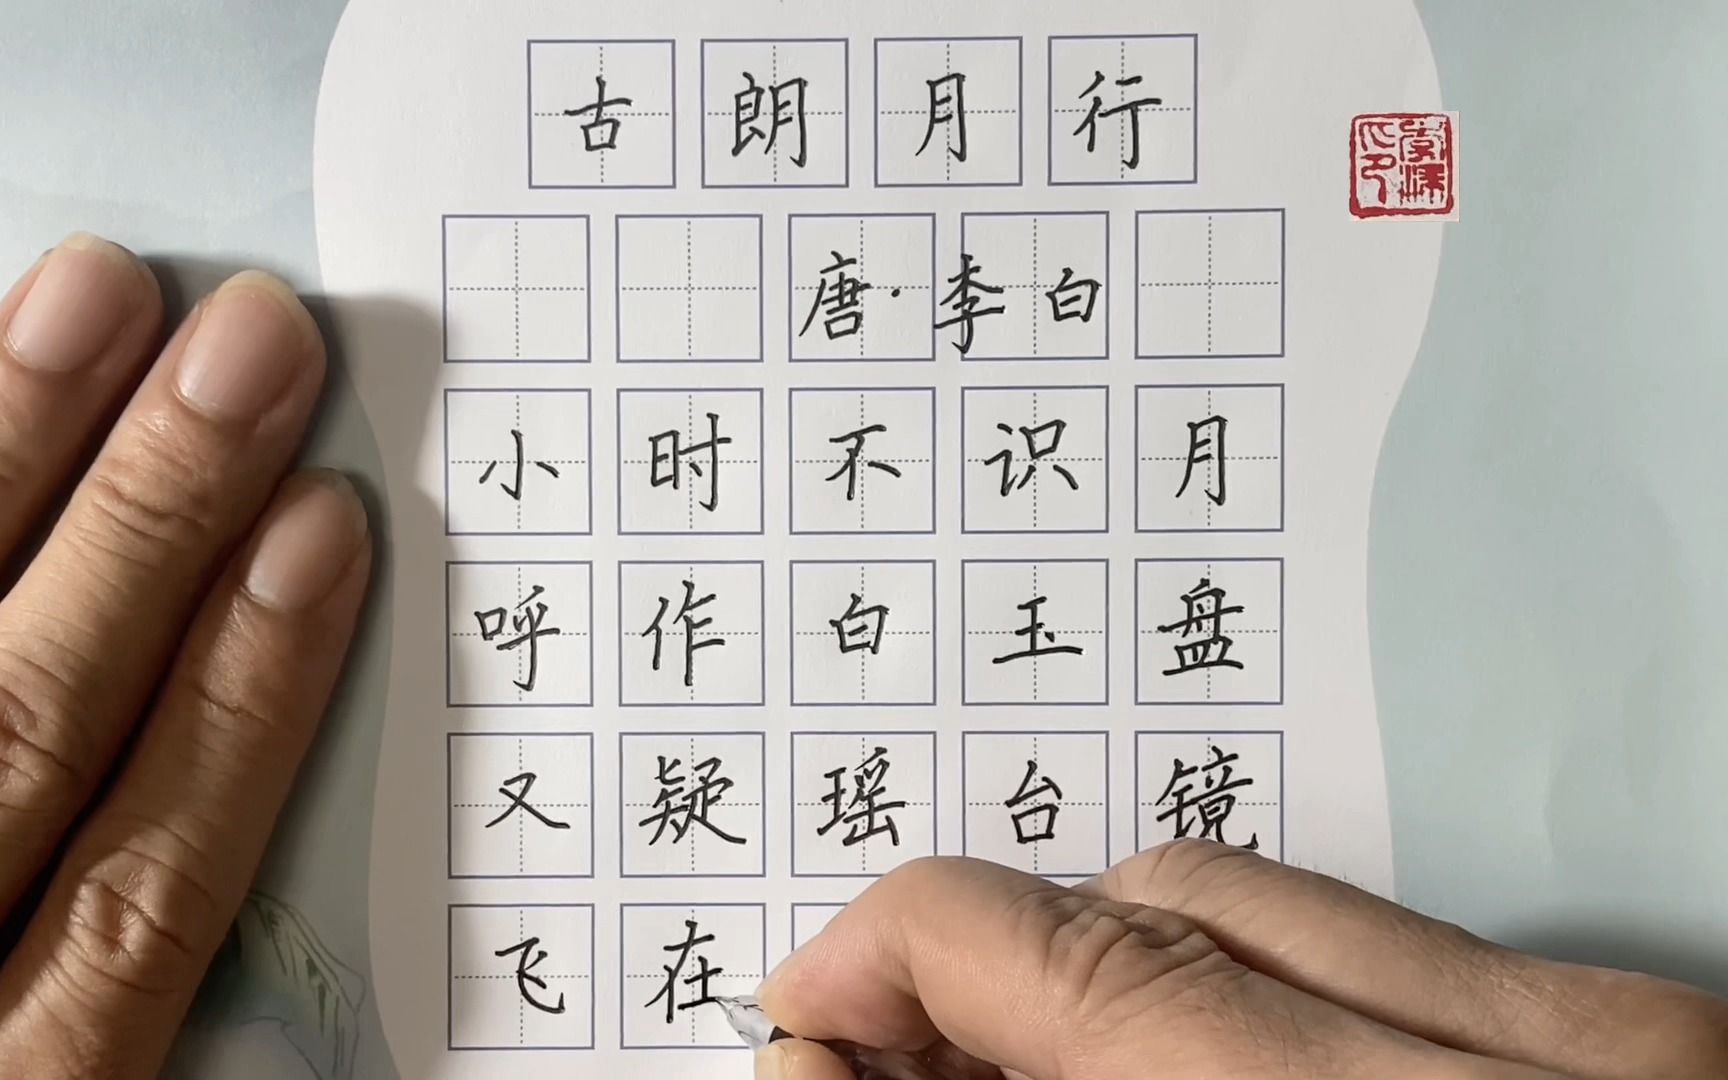 古朗月行
唐·李白
小时不识月
呼作白玉盘
又疑瑶台镜
飞在